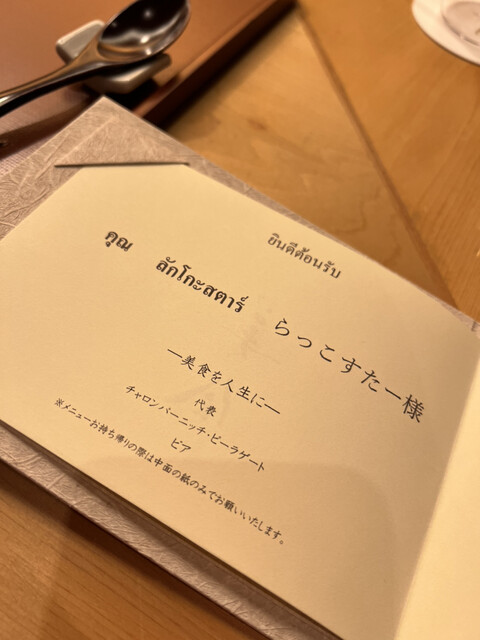 ยินดีต้อนรับ
คุณ ลักโกะสตาร์ らっこすたー様
―美食を人生に―
代表
チャロンパーニッチ・ピーラゲート
ピア
※メニューお持ち帰りの際は中面の紙のみでお願いいたします。